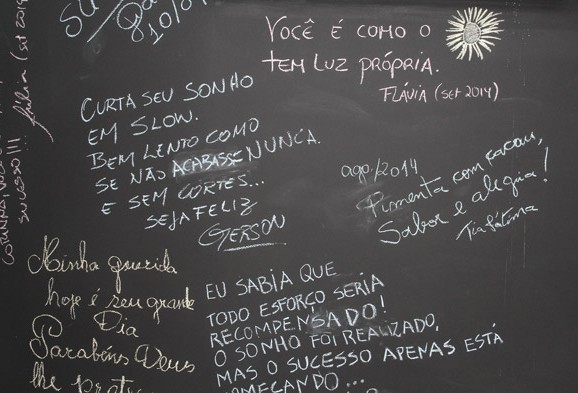 10/0
VOCÊ É COMO O
TEM LUZ PRÓPRIA.
FLÁVIA (SET 2014)
CURTA SEU SONHO
EM SLOW.
BEM LENTO COMO
SE NÃO ACABASSE NUNCA.
E SEM CORTES...
SEJA FELIZ
GERSON
ago/2014
Pimenta com cacau,
Sabor e alegria!
Tia Fátima
Minha querida
hoje é seu grande
Dia
Parabéns Deus
lhe
EU SABIA QUE
TODO ESFORÇO SERIA
RECOMPENSADO!
O SONHO FOI REALIZADO,
MAS O SUCESSO APENAS ESTÁ
COMEÇANDO...
SUCESSO!!!
(set 2014